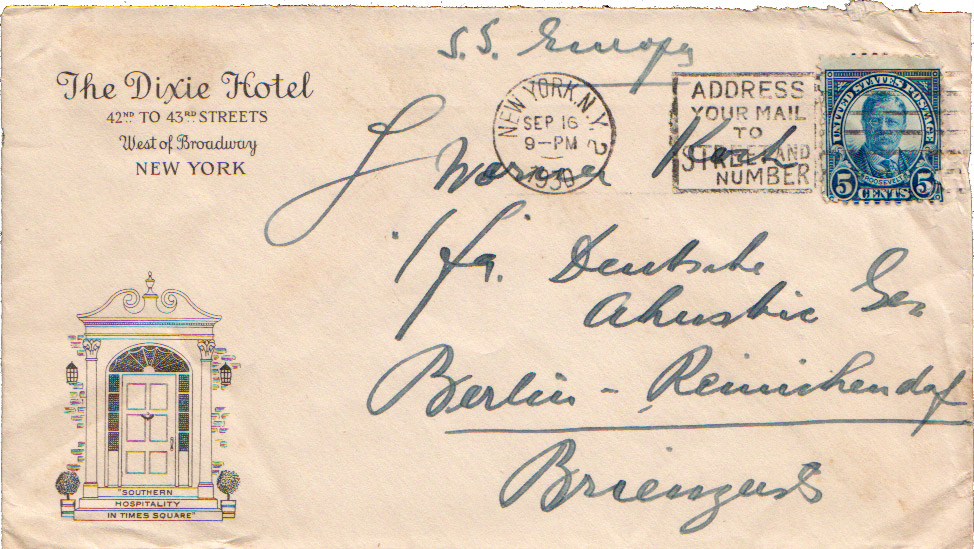 S.S. Europa
The Dixie Hotel
42ND TO 43RD STREETS
West of Broadway
NEW YORK
NEW YORK, N.Y. 2
SEP 16
9-PM
1930
ADDRESS
YOUR MAIL
TO
STREET AND
NUMBER
UNITED STATES POSTAGE
ROOSEVELT
5 CENTS 5
Werner
1/fa. Deutsche
Akustik Ges
Berlin - Reinickendorf
Brienzerst
"SOUTHERN
HOSPITALITY
IN TIMES SQUARE"